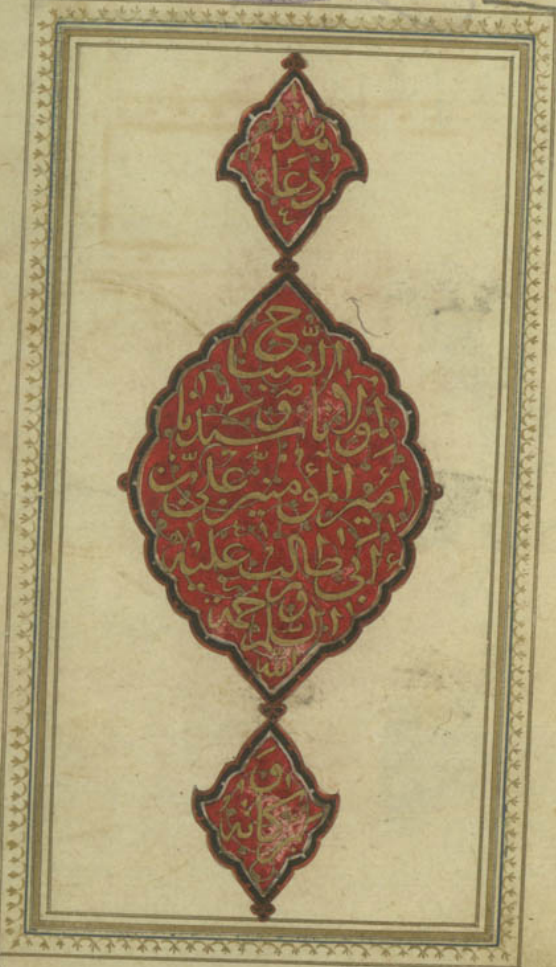 هذا
دُعَاءُ
الصَّبَاح
لمولانا و سَيِّدنا
أمير المؤمنين عَلىّ بن
أبى طالب عليه
السلام و رحمة
الله
وَ
بركاته